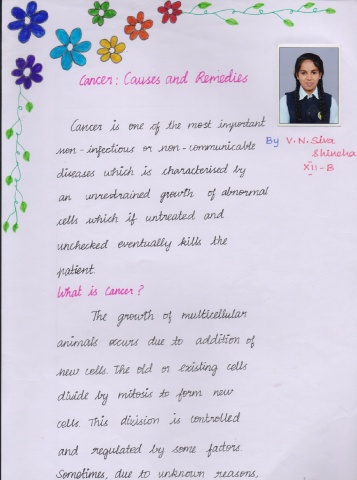 Cancer: Causes and Remedies
Cancer is one of the most important
non-infectious or non-communicable
diseases which is characterised by
an unrestrained growth of abnormal
cells which if untreated and
unchecked eventually kills the
patient.
By V.N. Siva
Shineha
XII-B
What is Cancer?
The growth of multicellular
animals occurs due to addition of
new cells. The old or existing cells
divide by mitosis to form new
cells. This division is controlled
and regulated by some factors.
Sometimes, due to unknown reasons,